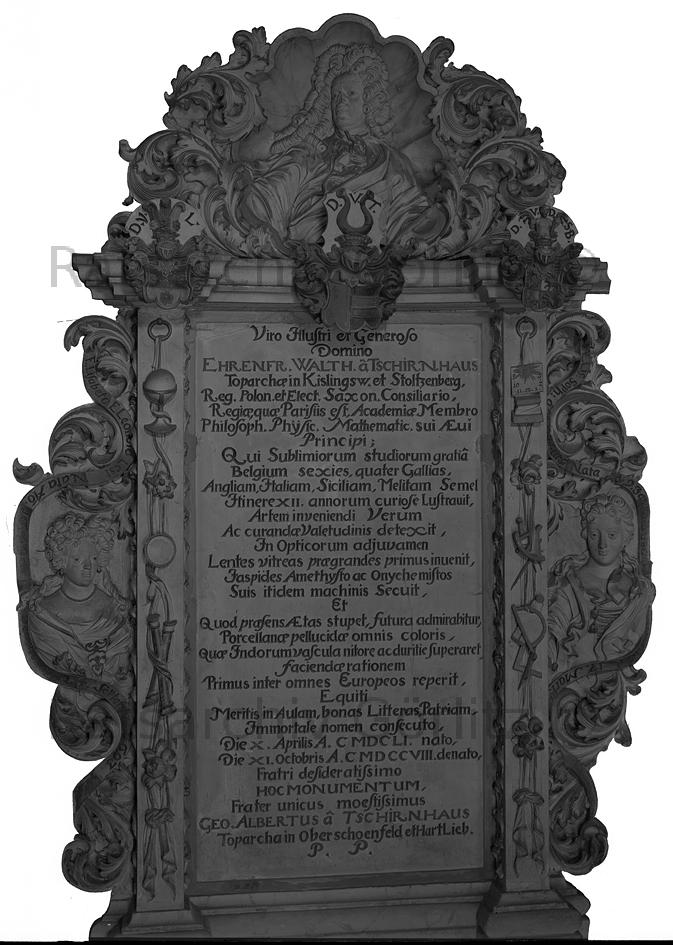 D. V. T.
Viro Illustri et Generoso
Domino
EHRENFR. WALTH. â TSCHIRNHAUS
Toparchæ in Kislingsw. et Stoltzenberg,
Reg. Polon. et Elect. Saxon. Consiliario,
Regiæ quæ Parisiis est, Academiæ Membro
Philosoph. Physic. Mathematic. sui Ævi
Principi;
Qui Sublimiorum studiorum gratiâ
Belgium sexies, quater Gallias,
Angliam, Italiam, Siciliam, Melitam Semel
Itinere XII. annorum curiose Lustrauit,
Artem inveniendi Verum
Ac curandæ Valetudinis detexit,
In Opticorum adjuvamen
Lentes vitreas prægrandes primus inuenit,
Iaspides Amethysto ac Onyche mistos
Suis itidem machinis Secuit,
Et
Quod præsens Ætas stupet, futura admirabitur,
Porcellanæ pellucidæ omnis coloris,
Quæ Indorum vascula nitore ac duritie superaret
faciendæ rationem
Primus inter omnes Europeos reperit,
Equiti
Meritis in Aulam, bonas Litteras, Patriam,
Immortale nomen consecuto,
Die X. Aprilis A. C MDCLI. nato,
Die XI. Octobris A. C MDCCVIII. denato,
Fratri desideratissimo
HOC MONUMENTUM,
Frater unicus moestissimus
GEO. ALBERTUS â TSCHIRNHAUS
Toparcha in Oberschoenfeld et Hart Lieb.
P. P.